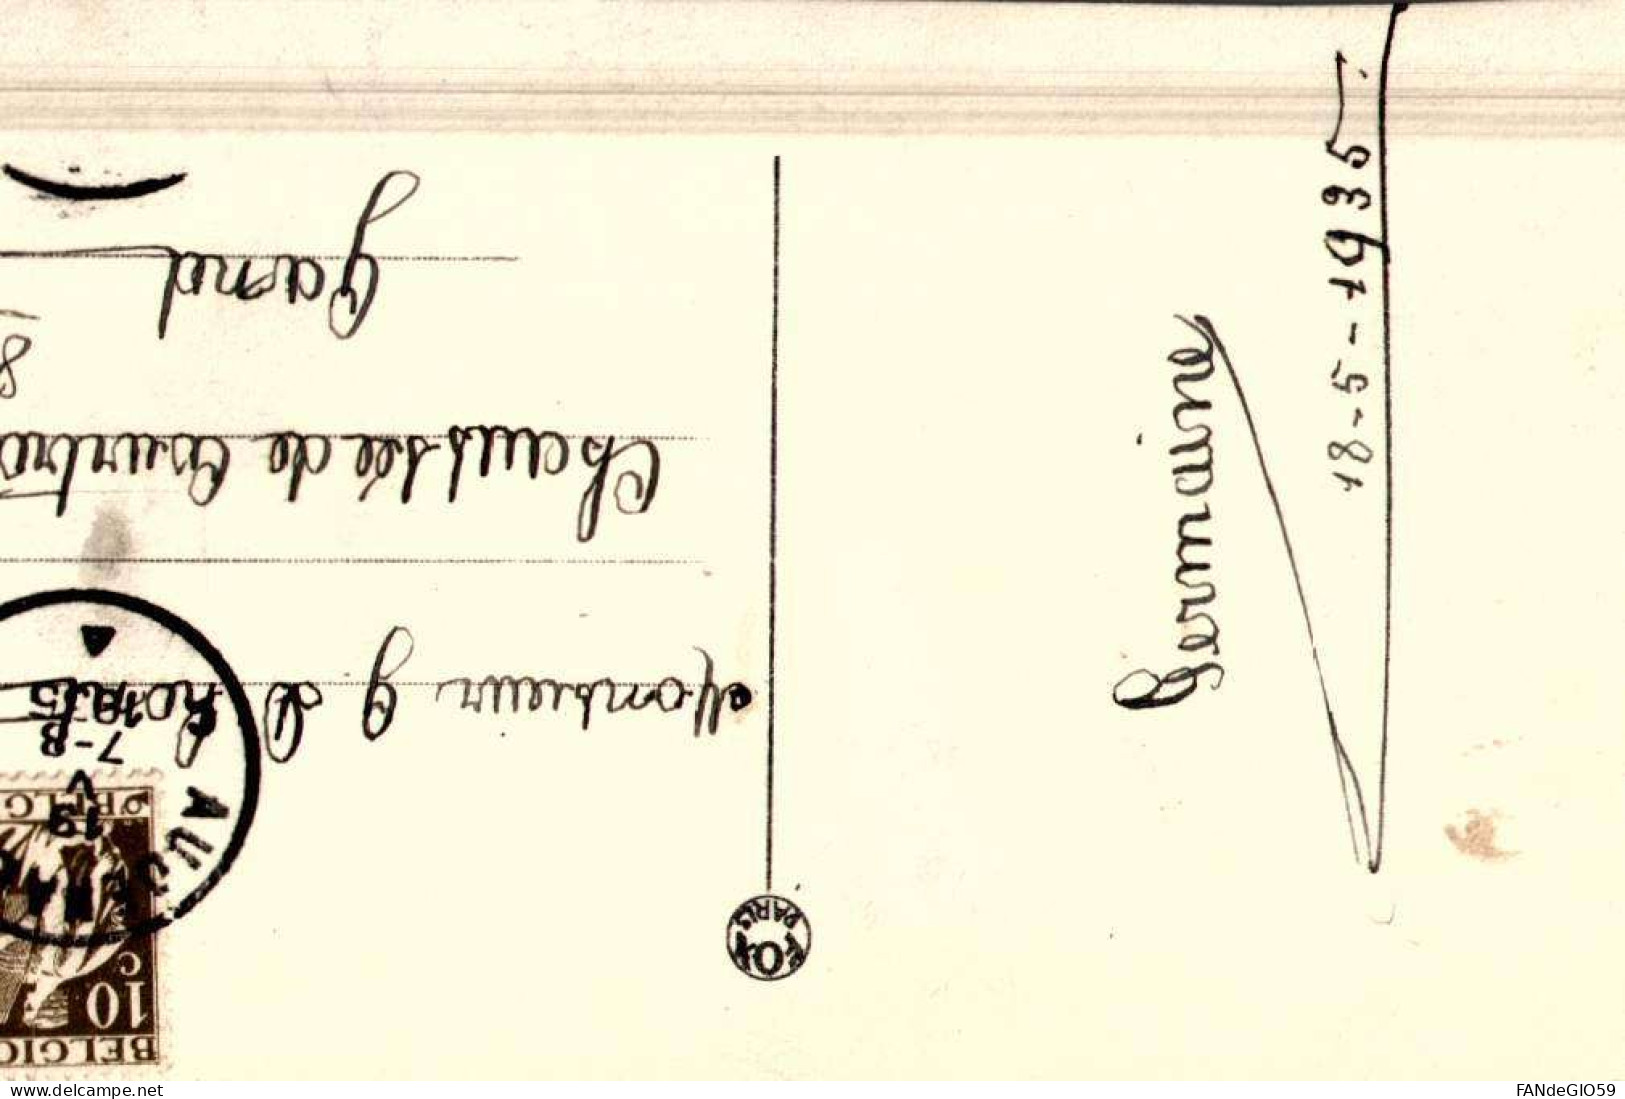 18-5-1935.
Germaine
Monsieur G. D'hont
Chaussée de Courtrai
8
Gand
AUDENA
19
V
7-8
1935
BELGIQ
10
C
BELG
FOX
PARIS
www.delcampe.net
FANdeGIO59